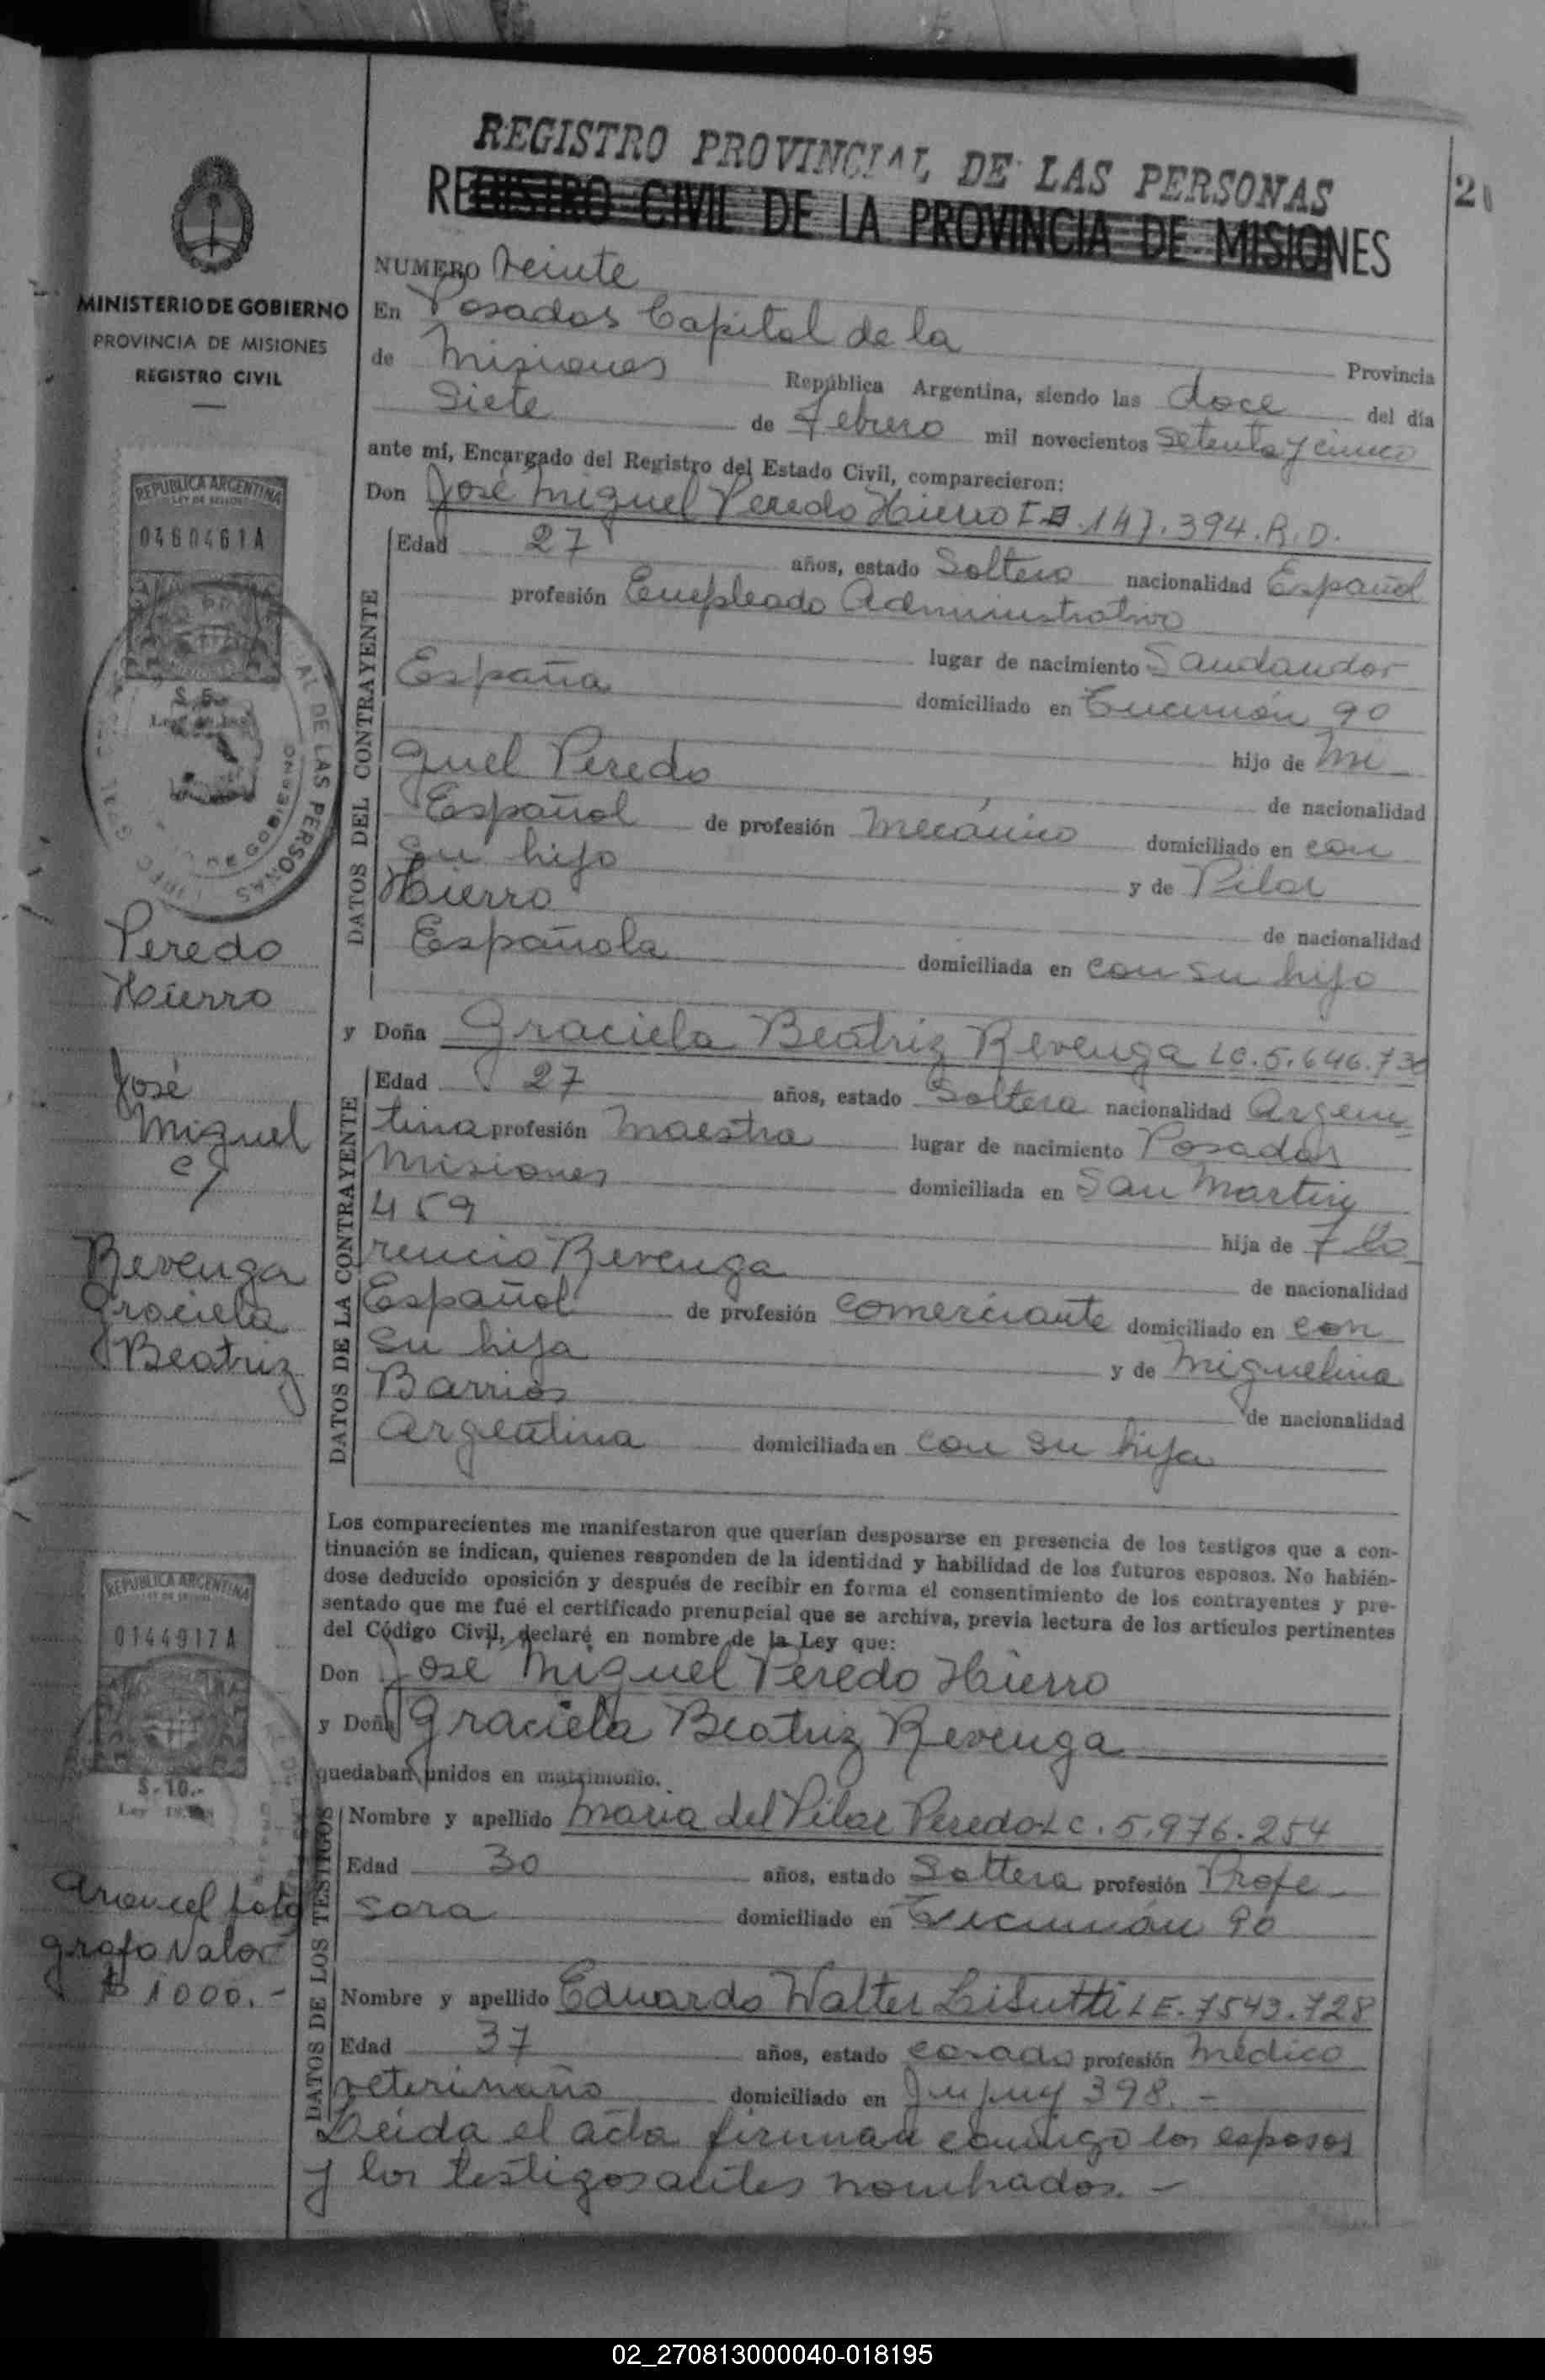 REGISTRO PROVINCIAL DE LAS PERSONAS
REGISTRO CIVIL DE LA PROVINCIA DE MISIONES
2
MINISTERIO DE GOBIERNO
PROVINCIA DE MISIONES
REGISTRO CIVIL
NUMERO Veinte
En Posadas Capital de la Provincia
de Misiones República Argentina, siendo las doce del día
Siete de Febrero mil novecientos Setenta y cinco
ante mí, Encargado del Registro del Estado Civil, comparecieron:
Don José Miguel Peredo Hierro 147.394.R.D.
DATOS DEL CONTRAYENTE
Edad 27 años, estado Soltero nacionalidad Español
profesión Empleado Administrativo
lugar de nacimiento Sandandor
España domiciliado en Tucumán 90
hijo de Mi
guel Peredo de nacionalidad
Español de profesión Mecánico domiciliado en con
su hijo y de Pilar
Hierro de nacionalidad
Española domiciliada en con su hijo
y Doña Graciela Beatriz Revenga LC.5.646.730
DATOS DE LA CONTRAYENTE
Edad 27 años, estado Soltera nacionalidad Argen-
tina profesión Maestra lugar de nacimiento Posadas
Misiones domiciliada en San Martín
459 hija de Flo
rencio Revenga de nacionalidad
Español de profesión Comerciante domiciliado en con
su hija y de Miguelina
Barrios de nacionalidad
Argentina domiciliada en con su hija
Los comparecientes me manifestaron que querían desposarse en presencia de los testigos que a con-
tinuación se indican, quienes responden de la identidad y habilidad de los futuros esposos. No habién-
dose deducido oposición y después de recibir en forma el consentimiento de los contrayentes y pre-
sentado que me fué el certificado prenupcial que se archiva, previa lectura de los artículos pertinentes
del Código Civil, declaré en nombre de la Ley que:
Don José Miguel Peredo Hierro
y Doña Graciela Beatriz Revenga
quedaban unidos en matrimonio.
DATOS DE LOS TESTIGOS
Nombre y apellido Maria del Pilar Peredo LC.5.976.254
Edad 30 años, estado Soltera profesión Profe-
sora domiciliado en Tucumán 90
Nombre y apellido Eduardo Walter Lisutti LE.7543.728
Edad 37 años, estado casado profesión Médico
veterinario domiciliado en Jujuy 398.-
Leída el acta firman conmigo los esposos
y los testigos antes nombrados.-
REPUBLICA ARGENTINA
LEY DE SELLOS
0460461A
$.5.-
AL DE LAS PERSONAS
Peredo
Hierro
José
Miguel
c/
Revenga
Graciela
Beatriz
REPUBLICA ARGENTINA
0144917A
$.10.-
Arancel foto
grafo Valor
$ 1000.-
02_270813000040-018195